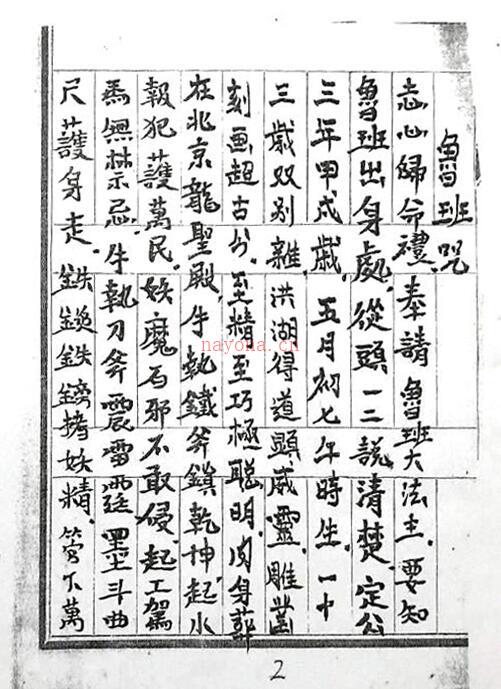 魯班咒
志心歸命禮.奉請魯班大法主.要知
魯班出身處.從頭一二說清楚定公
三年甲戌歲.五月初七午時生.一十
三歲双别離.洪湖得道顕威靈雕
刻画超古今.至精至巧極聰明.肉身葬
在北京龍聖殿.手執鐵斧鎮乾坤起水
報犯護萬民.妖魔石邪不敢侵.起工駕
馬無禁忌.手執刀斧震雷霆墨斗曲
尺護身走.鉄鎚鉄鎊拷妖精.管下萬
2
nayona.cn